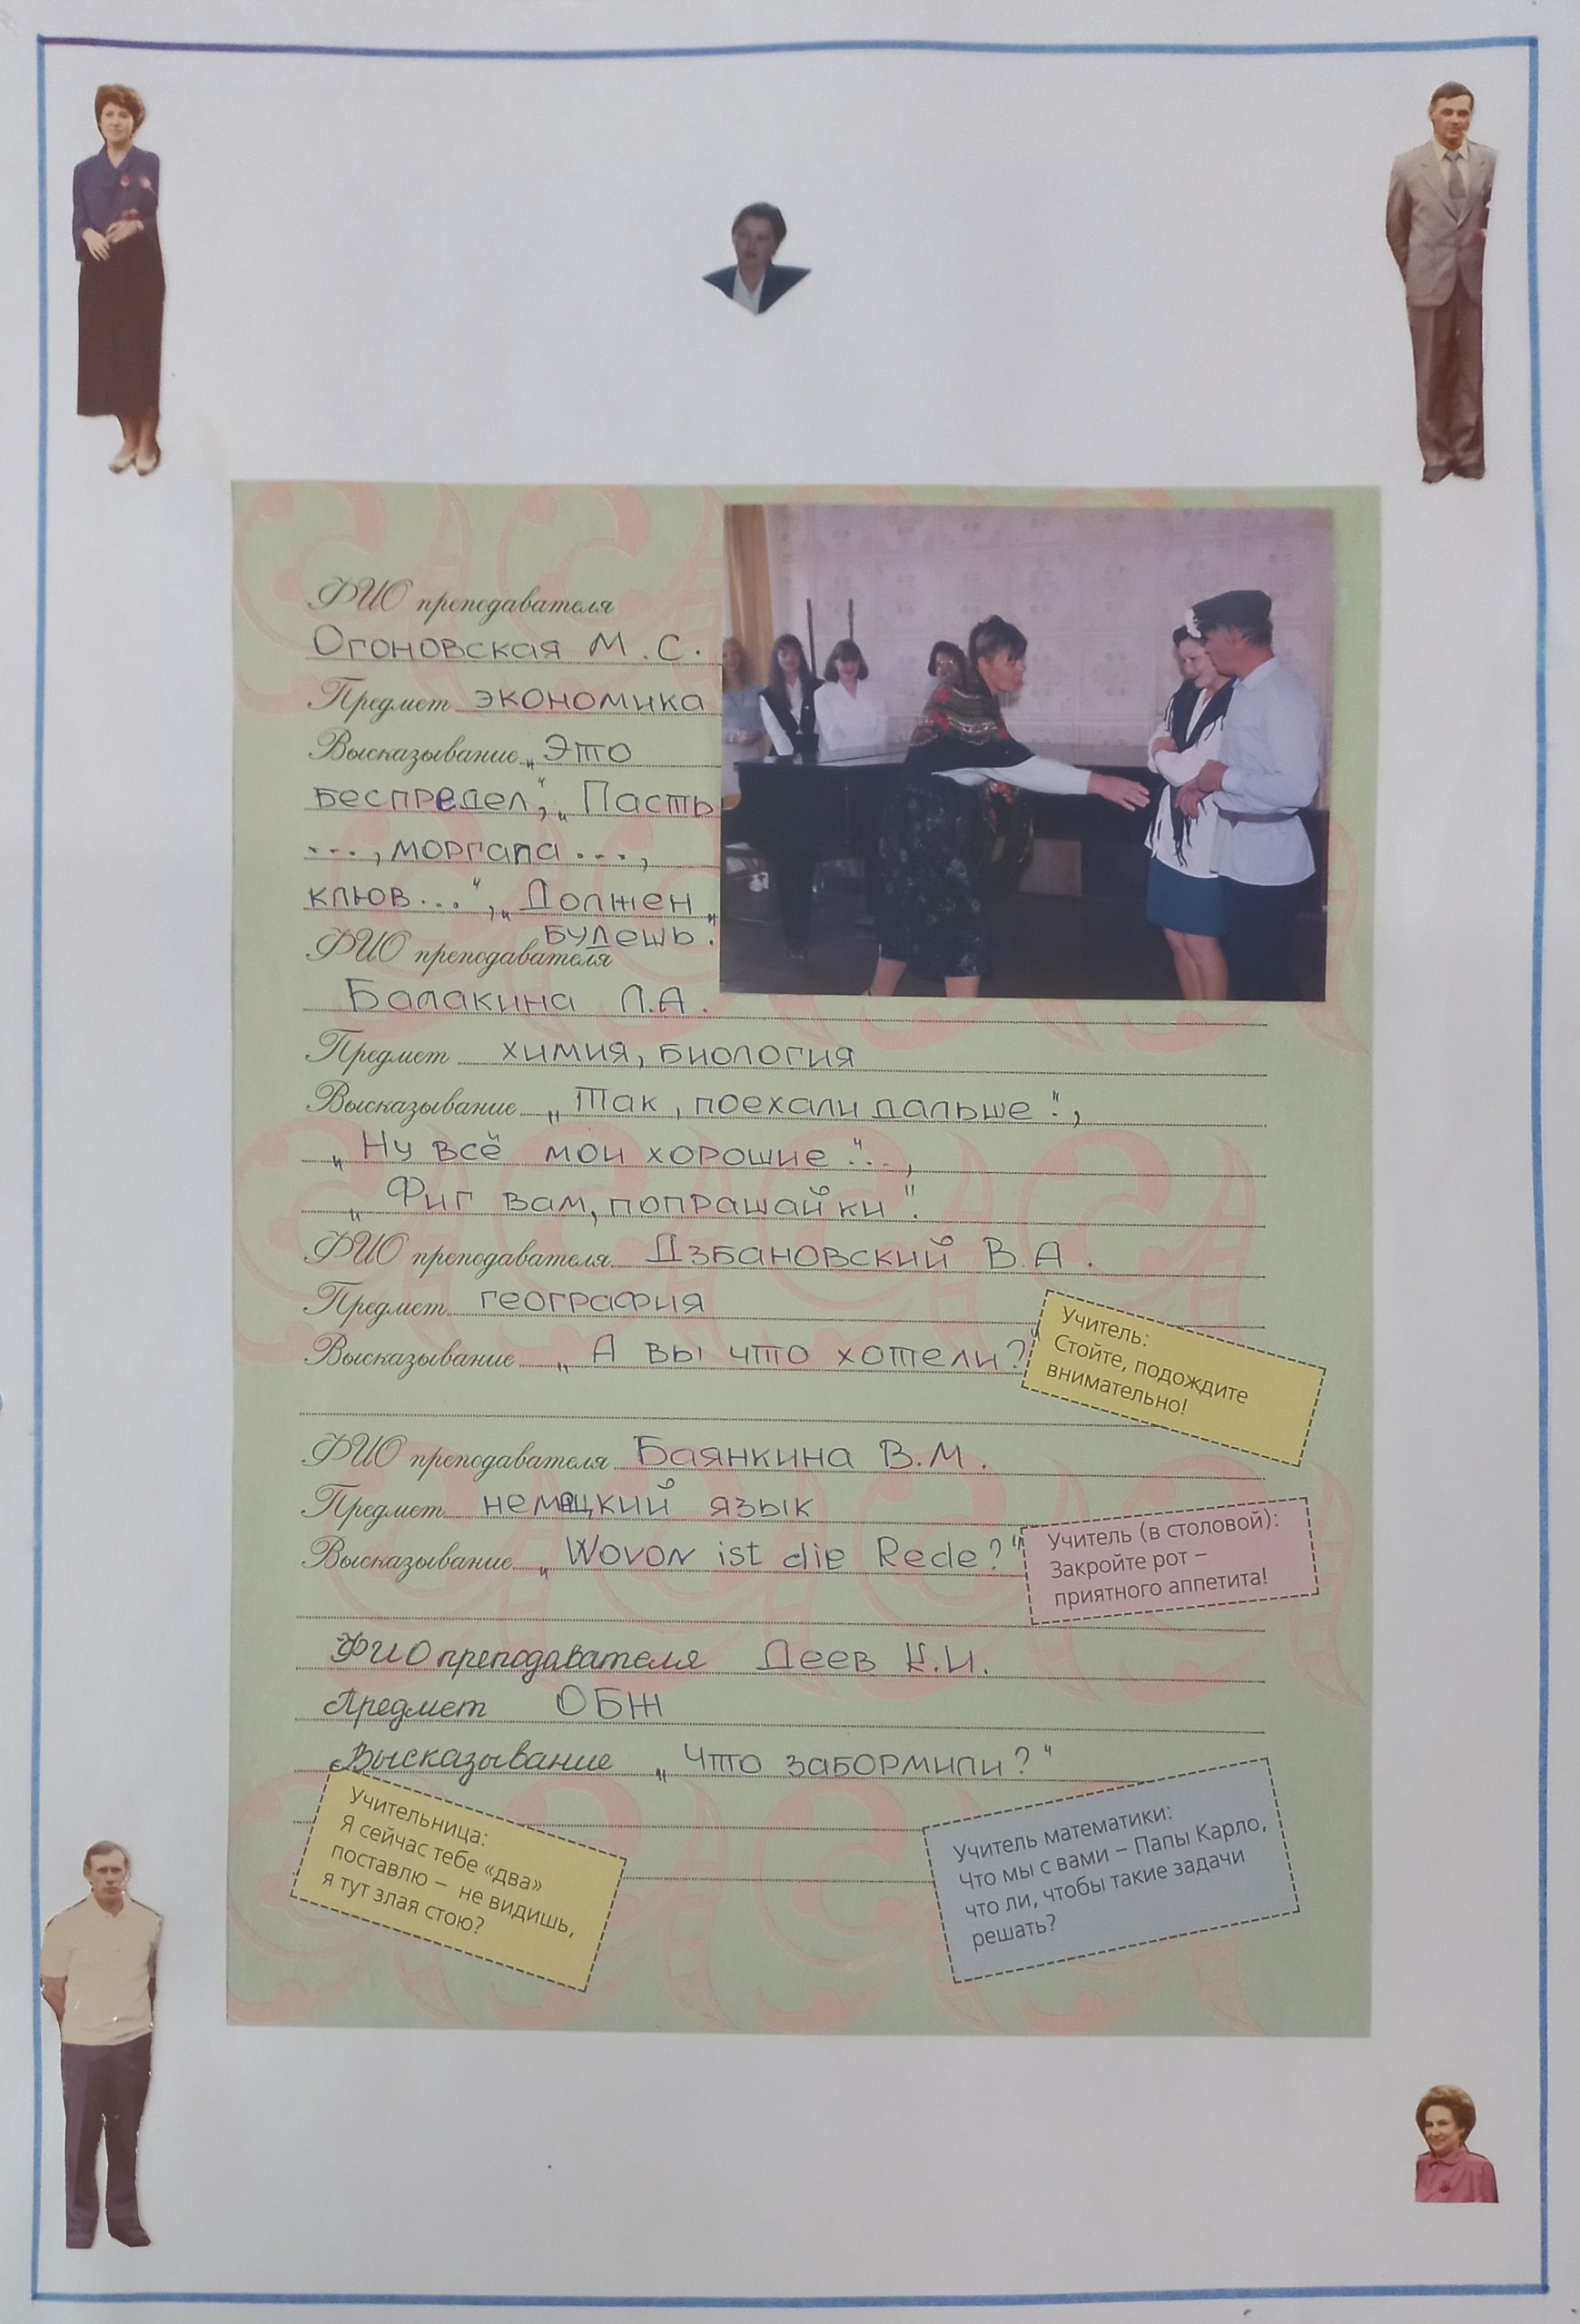 ФИО преподавателя
Огоновская М.С.
Предмет экономика
Высказывание „Это
беспредел", „Пасть
..., моргала ...,
клюв...", „Должен
будешь".
ФИО преподавателя
Балакина Л.А.
Предмет химия, биология
Высказывание „Так, поехали дальше",
„Ну всё мои хорошие"...,
„Фиг вам, попрашайки".
ФИО преподавателя Дзбановский В.А.
Предмет география
Высказывание „А вы что хотели?"
Учитель:
Стойте, подождите
внимательно!
ФИО преподавателя Баянкина В.М.
Предмет немецкий язык
Высказывание „Wovon ist die Rede?"
Учитель (в столовой):
Закройте рот –
приятного аппетита!
ФИО преподавателя Деев К.И.
Предмет ОБЖ
Высказывание „Что забормили?"
Учительница:
Я сейчас тебе «два»
поставлю – не видишь,
я тут злая стою?
Учитель математики:
Что мы с вами – Папы Карло,
что ли, чтобы такие задачи
решать?